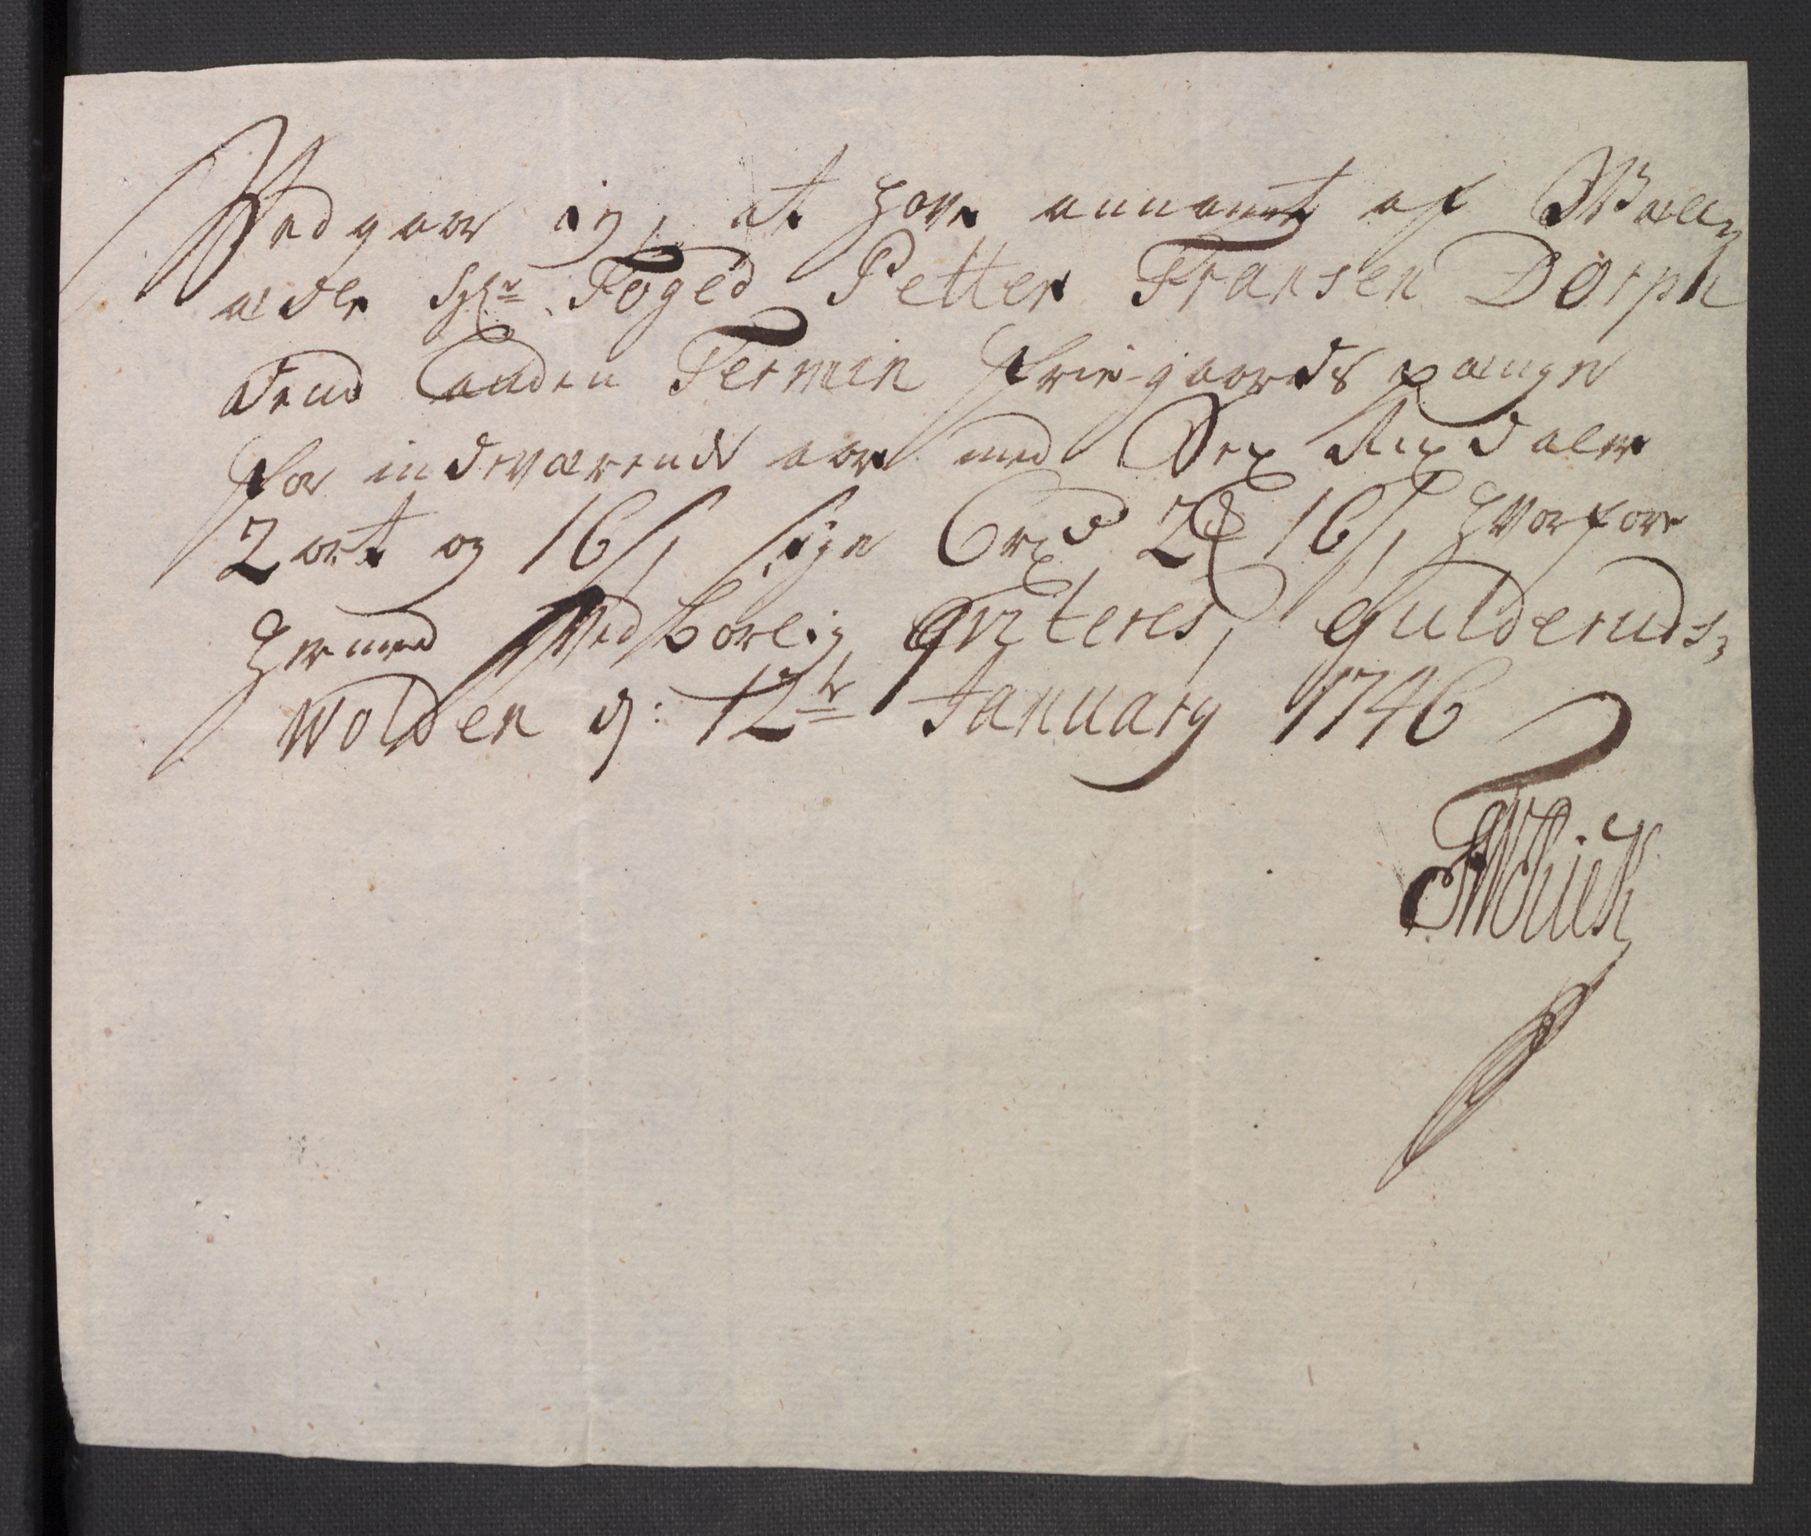 Ved gaar ieg, at have annamet af Welb
ædle Hr: Foged Petter Fransen Dorph
dend anden Termin frie-gaards pænge
for indeværende aar med Sex Rixdaler
2 ort og 16 s, sige 6 rxd 2 ort 16 s, hvorfore
hermed Vedbørlig qviteres, Gulderuds-
Wolden d: 12te January 1746